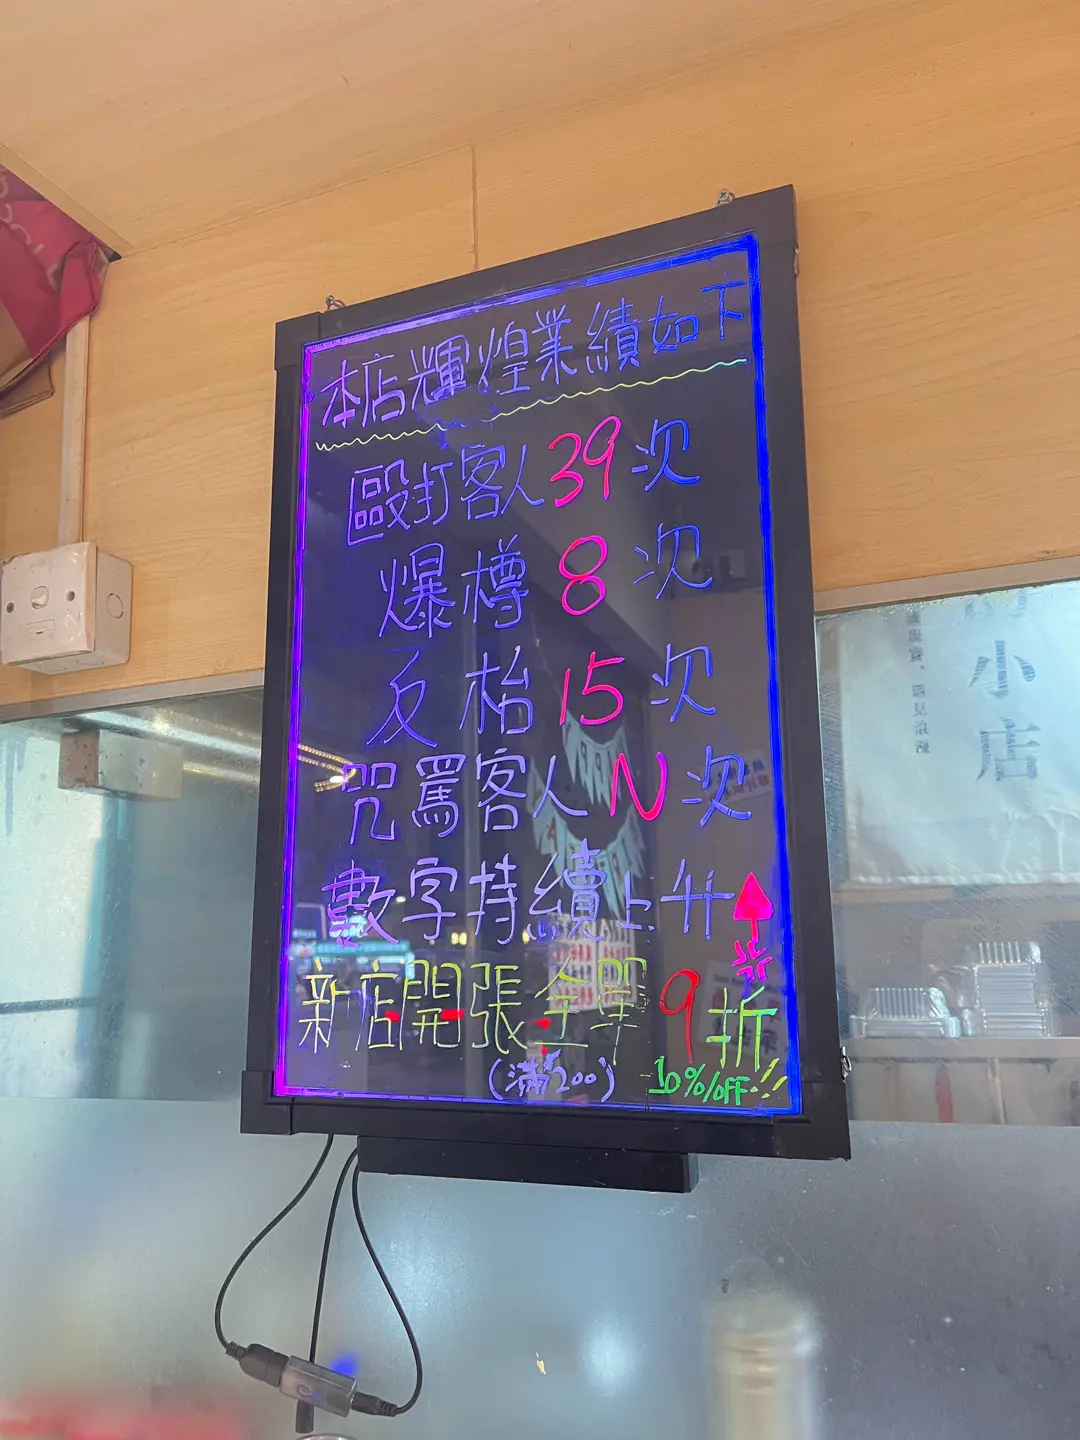 本店輝煌業績如下
毆打客人39次
爆樽8次
反枱15次
咒罵客人N次
數字持續上升
新店開張全單9折
(滿200) 10%OFF